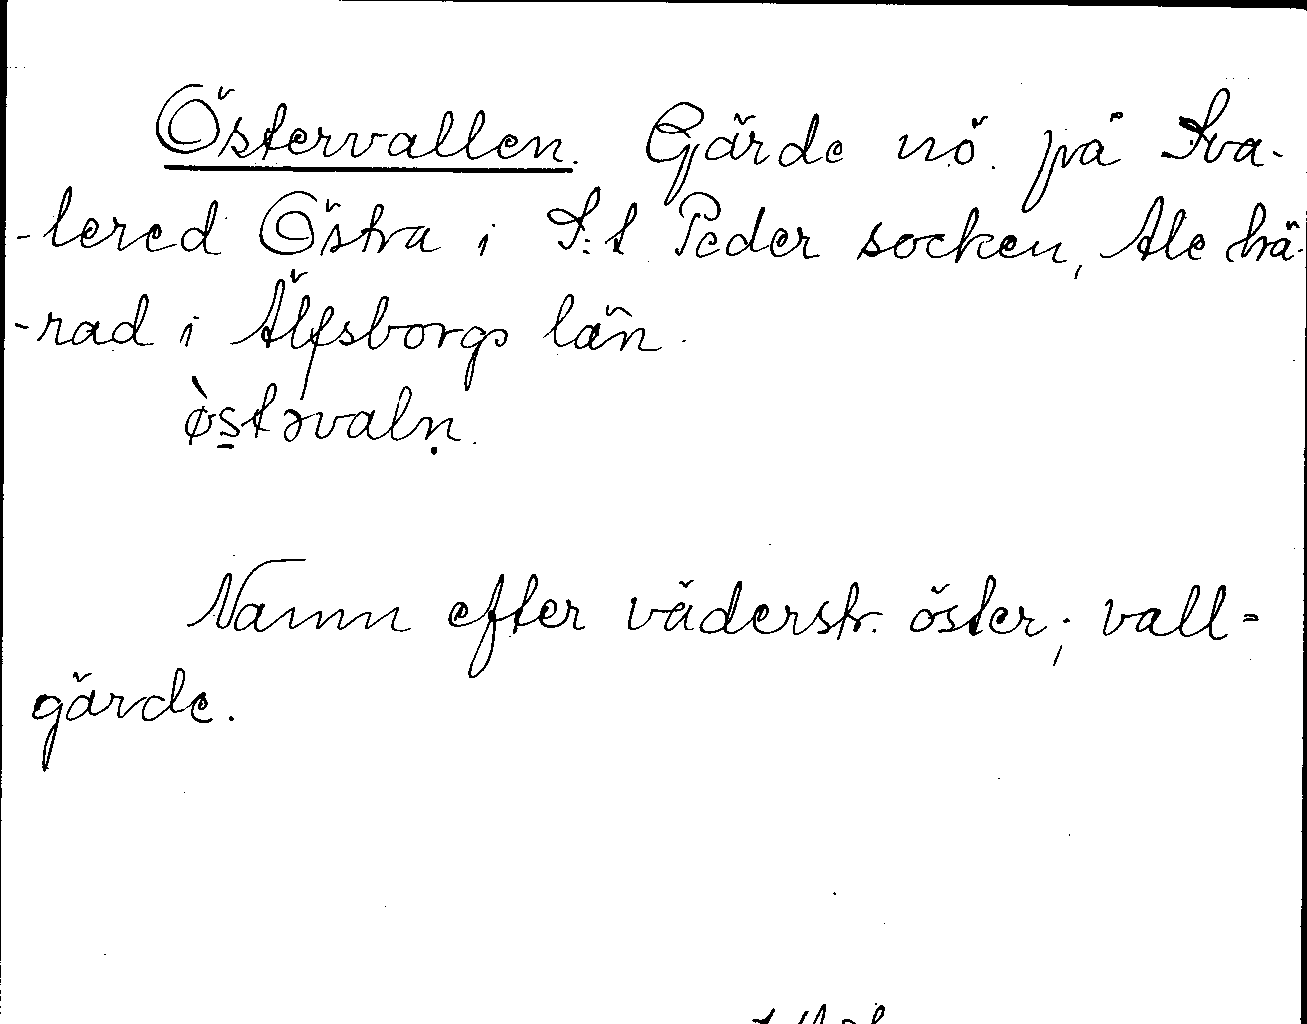 Östervallen. Gärde nö. på Sva-
-lered Östra i S:t Peder socken, Ale hä-
-rad i Älfsborgs län.
ø̀s̲tərvaln̥.
Namn efter väderstr. öster; vall =
gärde.